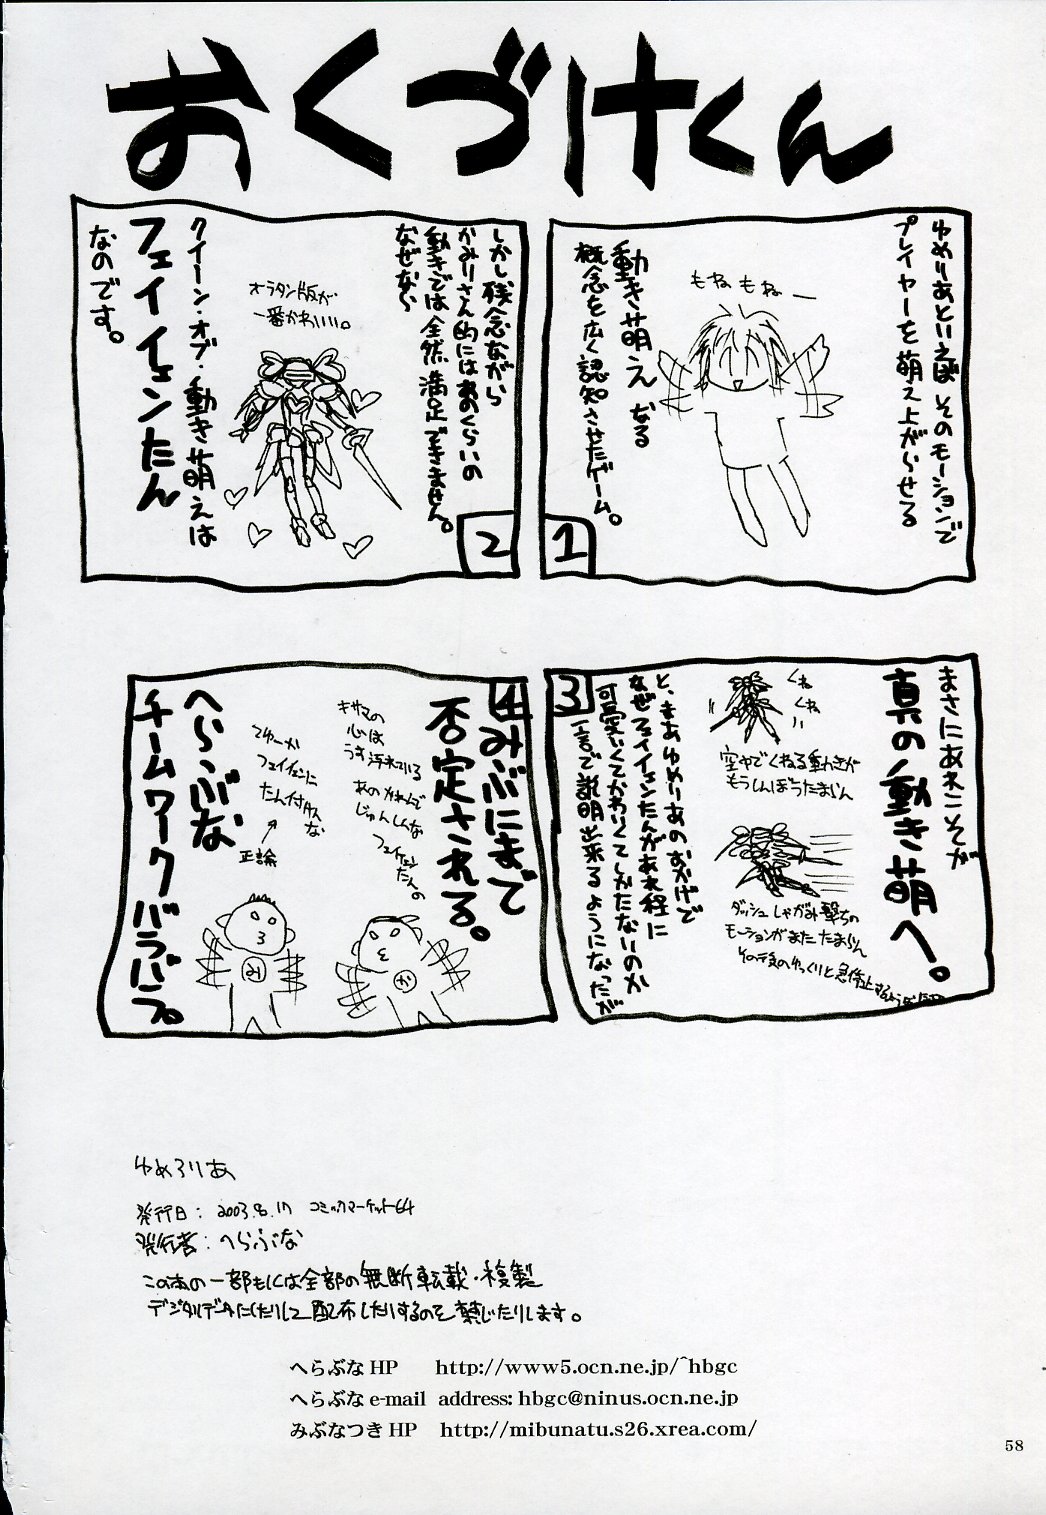 おくづけくん
ゆめりあといえば そのモーションで
プレイヤーを萌え上がらせる
動き萌え なる
概念を広く認知させたゲーム。
もねもねー
1
しかし残念ながら
かみりさん的にはあのくらいの
動きでは全然満足できません。
なぜなら
オラタン版が
一番かわいいい。
クイーン・オブ・動き萌えは
フェイイェンたん
なのです。
2
まさにあれこそが
真の動き萌へ。
くね
くね
空中でくねる動きが
もうしんぼうたまらん
ダッシュしゃがみ撃ちの
モーションがまたたまらん
その後のゆっくりと急停止する
と、まあゆめりあのおかげで
なぜフェイイェンたんがあれ程に
可愛いくてかわいくてしかたないのか
一言で説明出来るようになったが
3
4
みぶにまで
否定される。
キサマの
心は
うす汚れている
あのかれんで
じゅんしんな
フェイイェンたんの
てゆーか
フェイイェンに
たん付けんな
正論
へらぶな
チームワークバラバラ。
ゆめろりあ
発行日：2003.8.17 コミックマーケット64
発行者：へらぶな
この本の一部もしくは全部の無断転載・複製
デジタルデータにしたりして配布したりするのを禁じたりします。
へらぶなHP http://www5.ocn.ne.jp/~hbgc
へらぶなe-mail address: hbgc@ninus.ocn.ne.jp
みぶなつきHP http://mibunatu.s26.xrea.com/
58